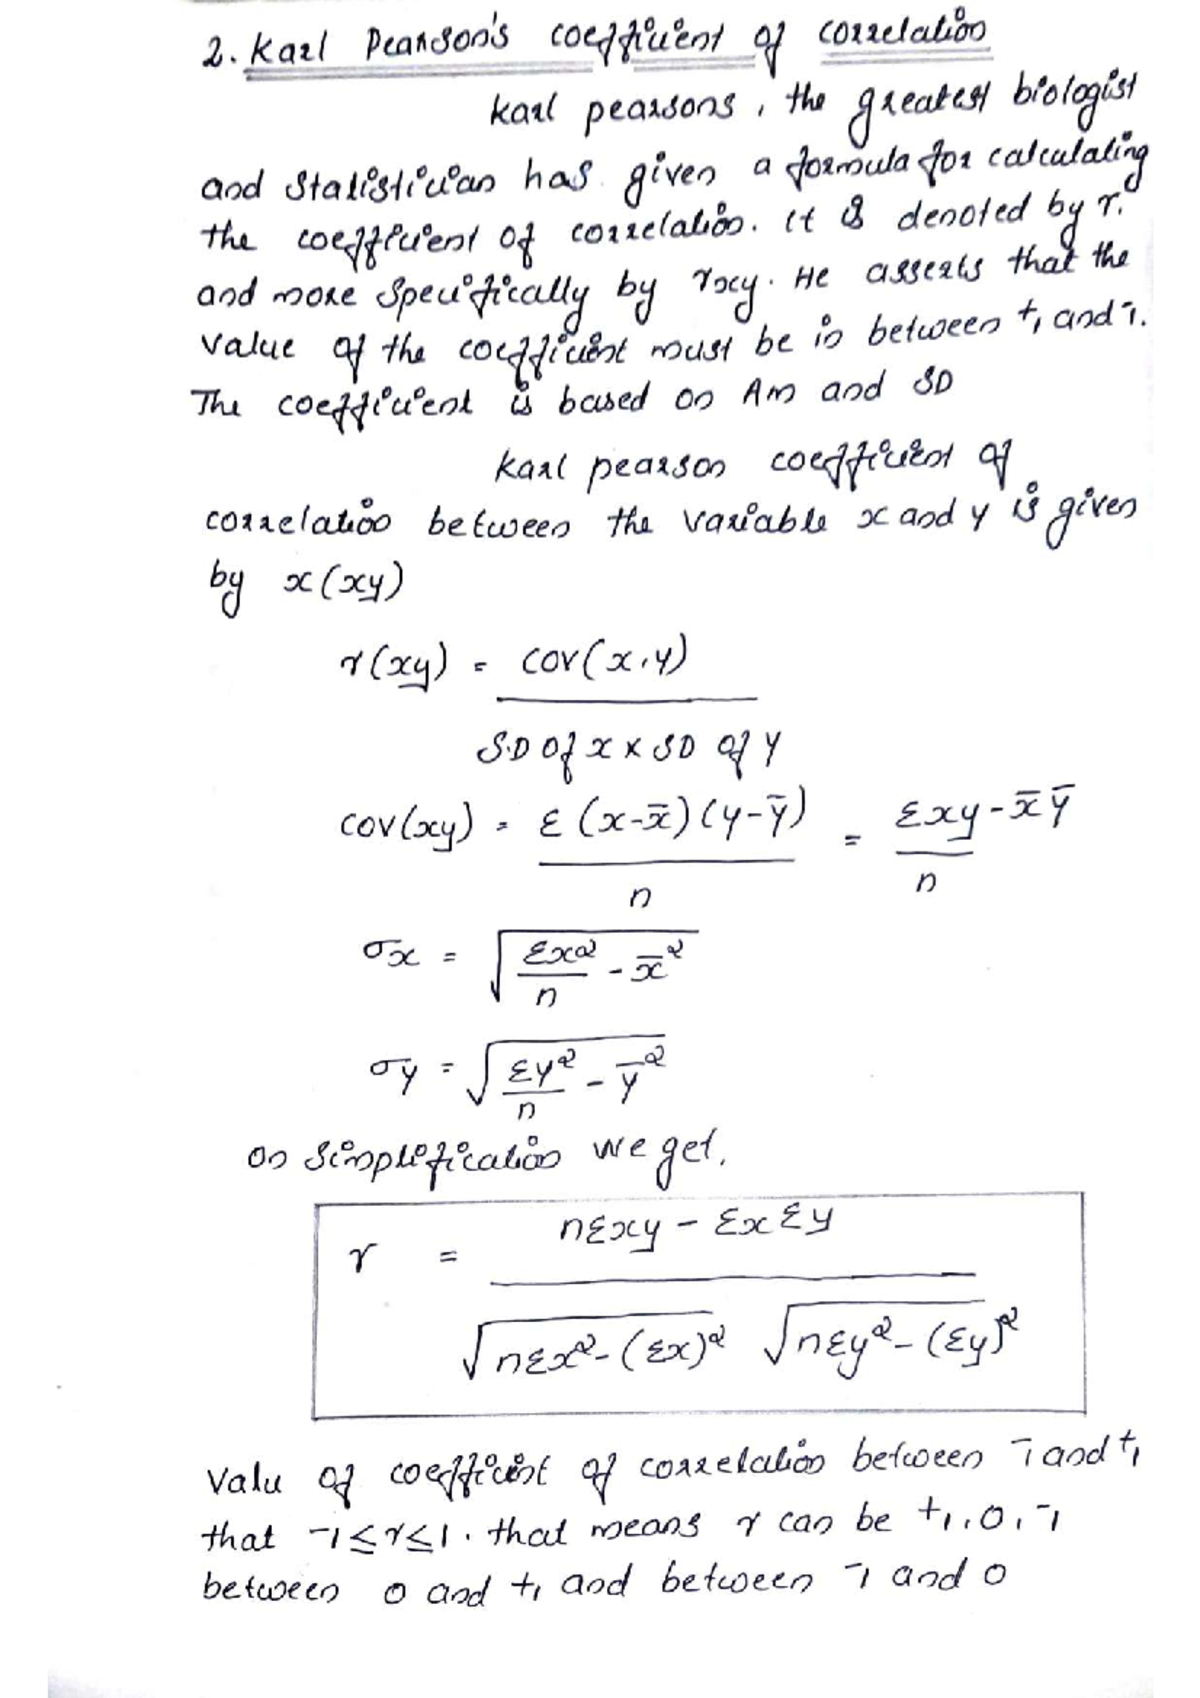 2. Karl Pearson's coefficient of correlation
Karl pearsons, the greatest biologist
and Statistician has given a formula for calculating
the coefficient of correlation. It is denoted by r.
and more specifically by rxy. He asserts that the
value of the coefficient must be in between +1 and -1.
The coefficient is based on Am and SD
Karl pearson coefficient of
correlation between the variable x and y is given
by x(xy)
r(xy) = cov(x,y) / S.D of x × SD of y
cov(xy) = Σ(x-x̄)(y-ȳ) / n = Σxy / n - x̄ȳ
σx = √(Σx² / n - x̄²)
σy = √(Σy² / n - ȳ²)
on simplification we get,
r = nΣxy - ΣxΣy / √(nΣx² - (Σx)²) √(nΣy² - (Σy)²)
Valu of coefficient of correlation between -1 and +1
that -1≤r≤1. that means r can be +1, 0, -1
between 0 and +1 and between -1 and 0